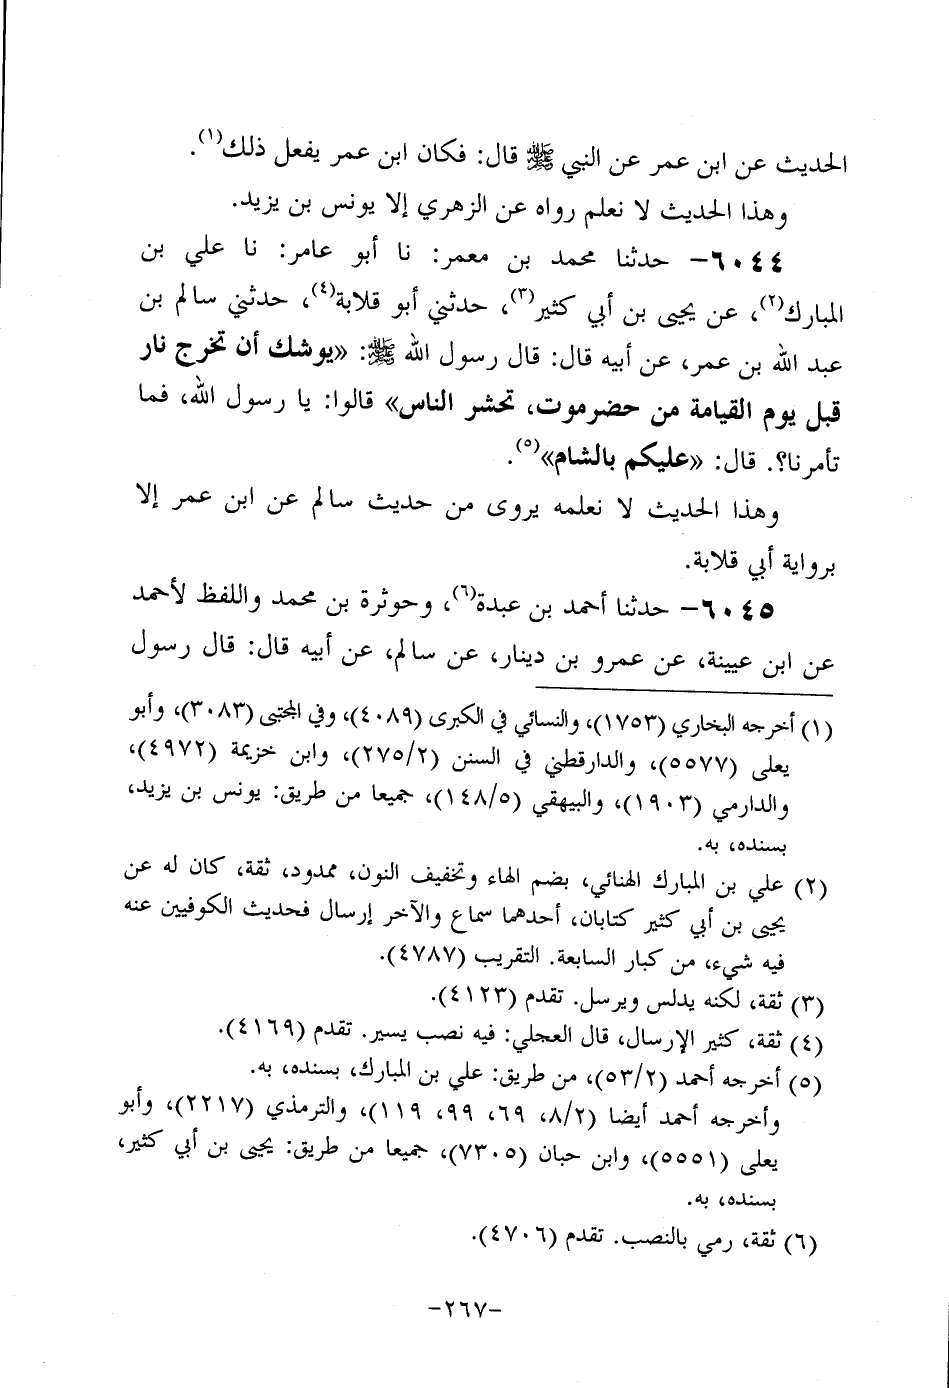 الحديث عن ابن عمر عن النبي ﷺ قال: فكان ابن عمر يفعل ذلك(١).
وهذا الحديث لا نعلم رواه عن الزهري إلا يونس بن يزيد.
٦٠٤٤– حدثنا محمد بن معمر: نا أبو عامر: نا علي بن
المبارك(٢)، عن يحيى بن أبي كثير(٣)، حدثني أبو قلابة(٤)، حدثني سالم بن
عبد الله بن عمر، عن أبيه قال: قال رسول الله ﷺ: «يوشك أن تخرج نار
قبل يوم القيامة من حضرموت، تحشر الناس» قالوا: يا رسول الله، فما
تأمرنا؟. قال: «عليكم بالشام»(٥).
وهذا الحديث لا نعلمه يروى من حديث سالم عن ابن عمر إلا
برواية أبي قلابة.
٦٠٤٥– حدثنا أحمد بن عبدة(٦)، وحوثرة بن محمد واللفظ لأحمد
عن ابن عيينة، عن عمرو بن دينار، عن سالم، عن أبيه قال: قال رسول
(١) أخرجه البخاري (١٧٥٣)، والنسائي في الكبرى (٤٠٨٩)، وفي المجتبى (٣٠٨٣)، وأبو
يعلى (٥٥٧٧)، والدارقطني في السنن (٢٧٥/٢)، وابن خزيمة (٤٩٧٢)،
والدارمي (١٩٠٣)، والبيهقي (١٤٨/٥)، جميعا من طريق: يونس بن يزيد،
بسنده، به.
(٢) علي بن المبارك الهنائي، بضم الهاء وتخفيف النون، ممدود، ثقة، كان له عن
يحيى بن أبي كثير كتابان، أحدهما سماع والآخر إرسال فحديث الكوفيين عنه
فيه شيء، من كبار السابعة. التقريب (٤٧٨٧).
(٣) ثقة، لكنه يدلس ويرسل. تقدم (٤١٢٣).
(٤) ثقة، كثير الإرسال، قال العجلي: فيه نصب يسير. تقدم (٤١٦٩).
(٥) أخرجه أحمد (٥٣/٢)، من طريق: علي بن المبارك، بسنده، به.
وأخرجه أحمد أيضا (٨/٢، ٦٩، ٩٩، ١١٩)، والترمذي (٢٢١٧)، وأبو
يعلى (٥٥٥١)، وابن حبان (٧٣٠٥)، جميعا من طريق: يحيى بن أبي كثير،
بسنده، به.
(٦) ثقة، رمي بالنصب. تقدم (٤٧٠٦).
–٢٦٧–